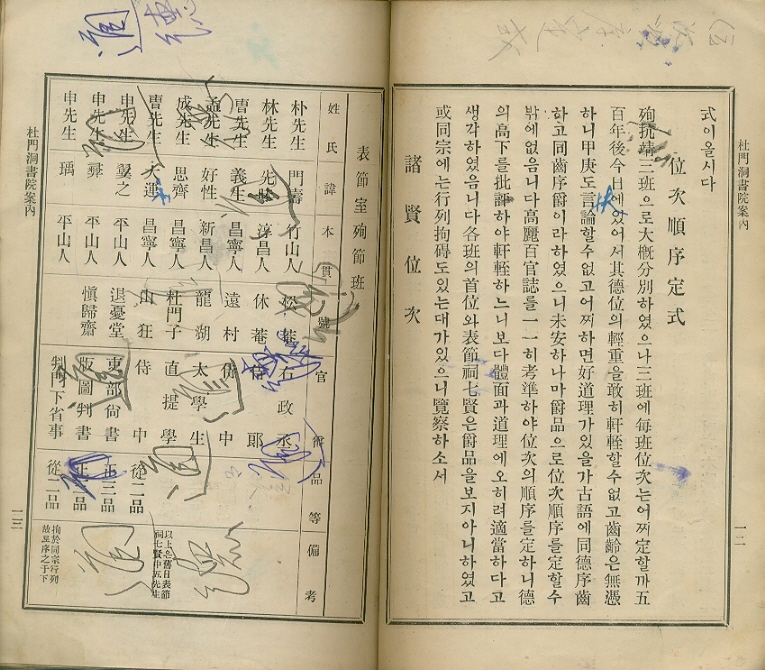 杜門洞書院案內
一二
式이올시다
位次順序定式
殉抗靖三班으로大槪分別하였으나三班에每班位次는어찌定할까五
百年後今日에있어서其德位의輕重을敢히軒輊할수없고齒齡은無憑
하니甲庚도言論할수없고어찌하면好道理가있을가古語에同德序齒
하고同齒序爵이라하였으니未安하나마爵品으로位次順序를定할수
밖에없음니다高麗百官誌를一一히考準하야位次의順序를定하니德
의高下를批評하야軒輊하느니보다體面과道理에오히려適當하다고
생각하였음니다各班의首位와表節祠七賢은爵品을보지아니하였고
或同宗에는行列拘碍도있는대가있으니覽察하소서
諸賢位次
表節室殉節班
姓氏 諱 本貫 號 官銜 品等 備考
朴先生 門壽 竹山人 松菴 右政丞
林先生 先味 淳昌人 休菴
曹先生 義生 昌寧人 遠村 侍中
孟先生 好性 新昌人 龍湖 太學生
成先生 思齊 昌寧人 杜門子 直提學 以上은舊日表節祠七賢中五先生
曹先生 大運 昌寧人 山狂 侍中 從二品
申先生 翼之 平山人 退憂堂 吏部尙書 正三品
申先生 彛 平山人 愼歸齋 版圖判書 正三品
申先生 瑀 平山人 判門下省事 從二品 拘於同宗行列故로序之于下
杜門洞書院案內
一三